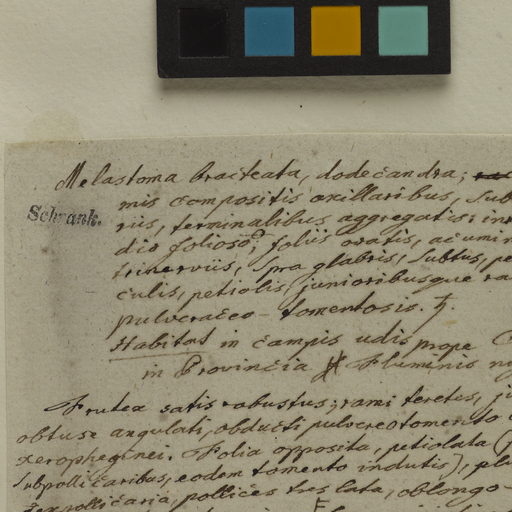 Melastoma bracteata, dodecandra;
mis compositis axillaribus, sub
Schrank.
riis, terminalibus aggregatis: in
dio folioso, foliis ovatis, acumin
trinerviis, supra glabris, subtus, pe
culis, petiolis, junioribusque ra
pulvereaceo-tomentosis. ♄.
Habitat in campis udis prope
in Provincia Fluminis
Frutex satis robustus; rami teretes, ju
obtuse angulati, obducti pulvereotomento
xerophegmei. Folia opposita, petiolata (
subpollicaribus, eodem tomento indutis), pl
pollicaria, pollices tres lata, oblongo-